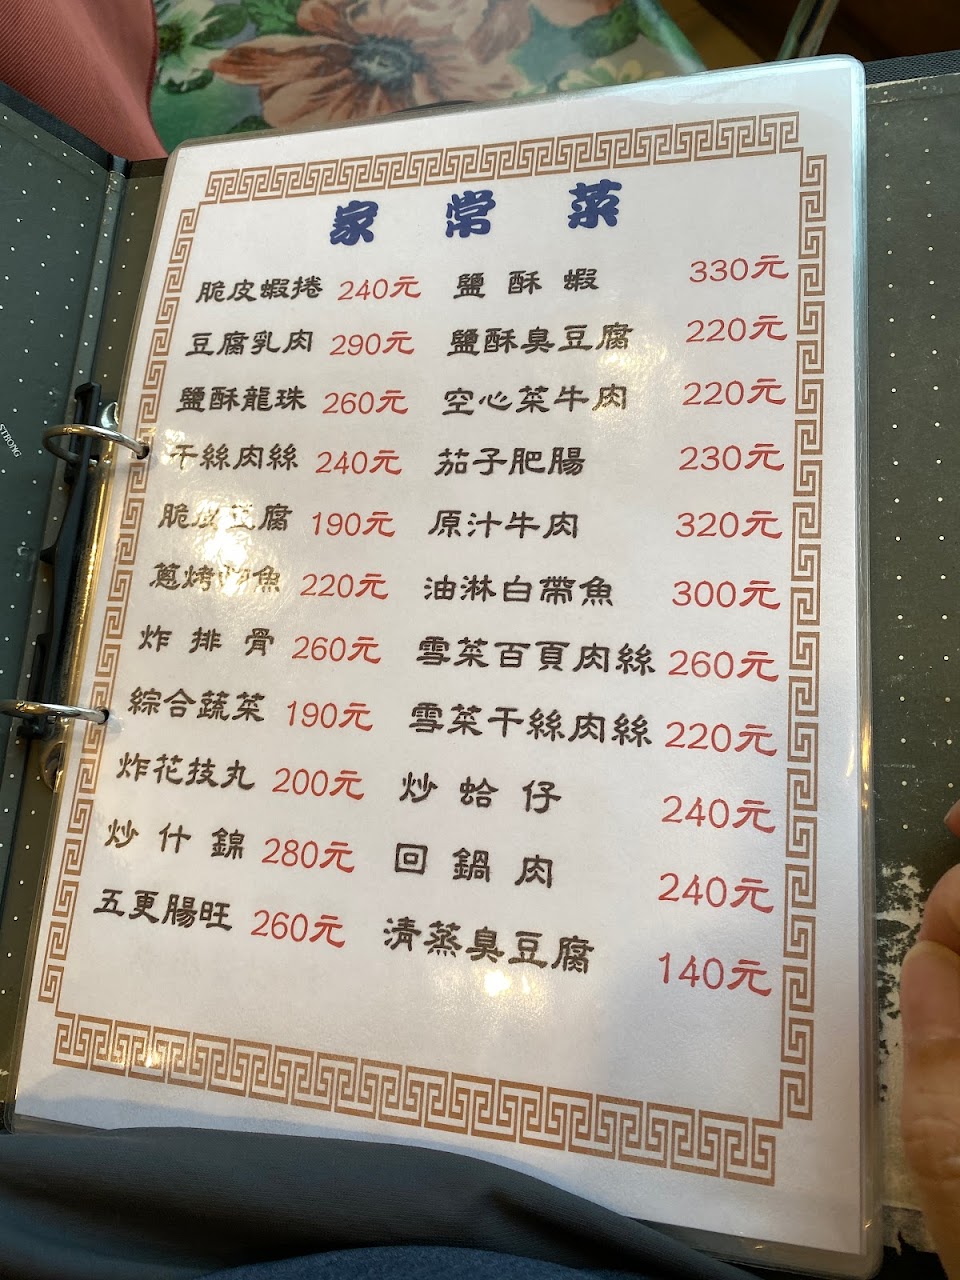 家常菜
脆皮蝦捲 240元 鹽酥蝦 330元
豆腐乳肉 290元 鹽酥臭豆腐 220元
鹽酥龍珠 260元 空心菜牛肉 220元
干絲肉絲 240元 茄子肥腸 230元
脆皮豆腐 190元 原汁牛肉 320元
蔥烤 魚 220元 油淋白帶魚 300元
炸排骨 260元 雪菜百頁肉絲 260元
綜合蔬菜 190元 雪菜干絲肉絲 220元
炸花技丸 200元 炒蛤仔 240元
炒什錦 280元 回鍋肉 240元
五更腸旺 260元 清蒸臭豆腐 140元
STRONG